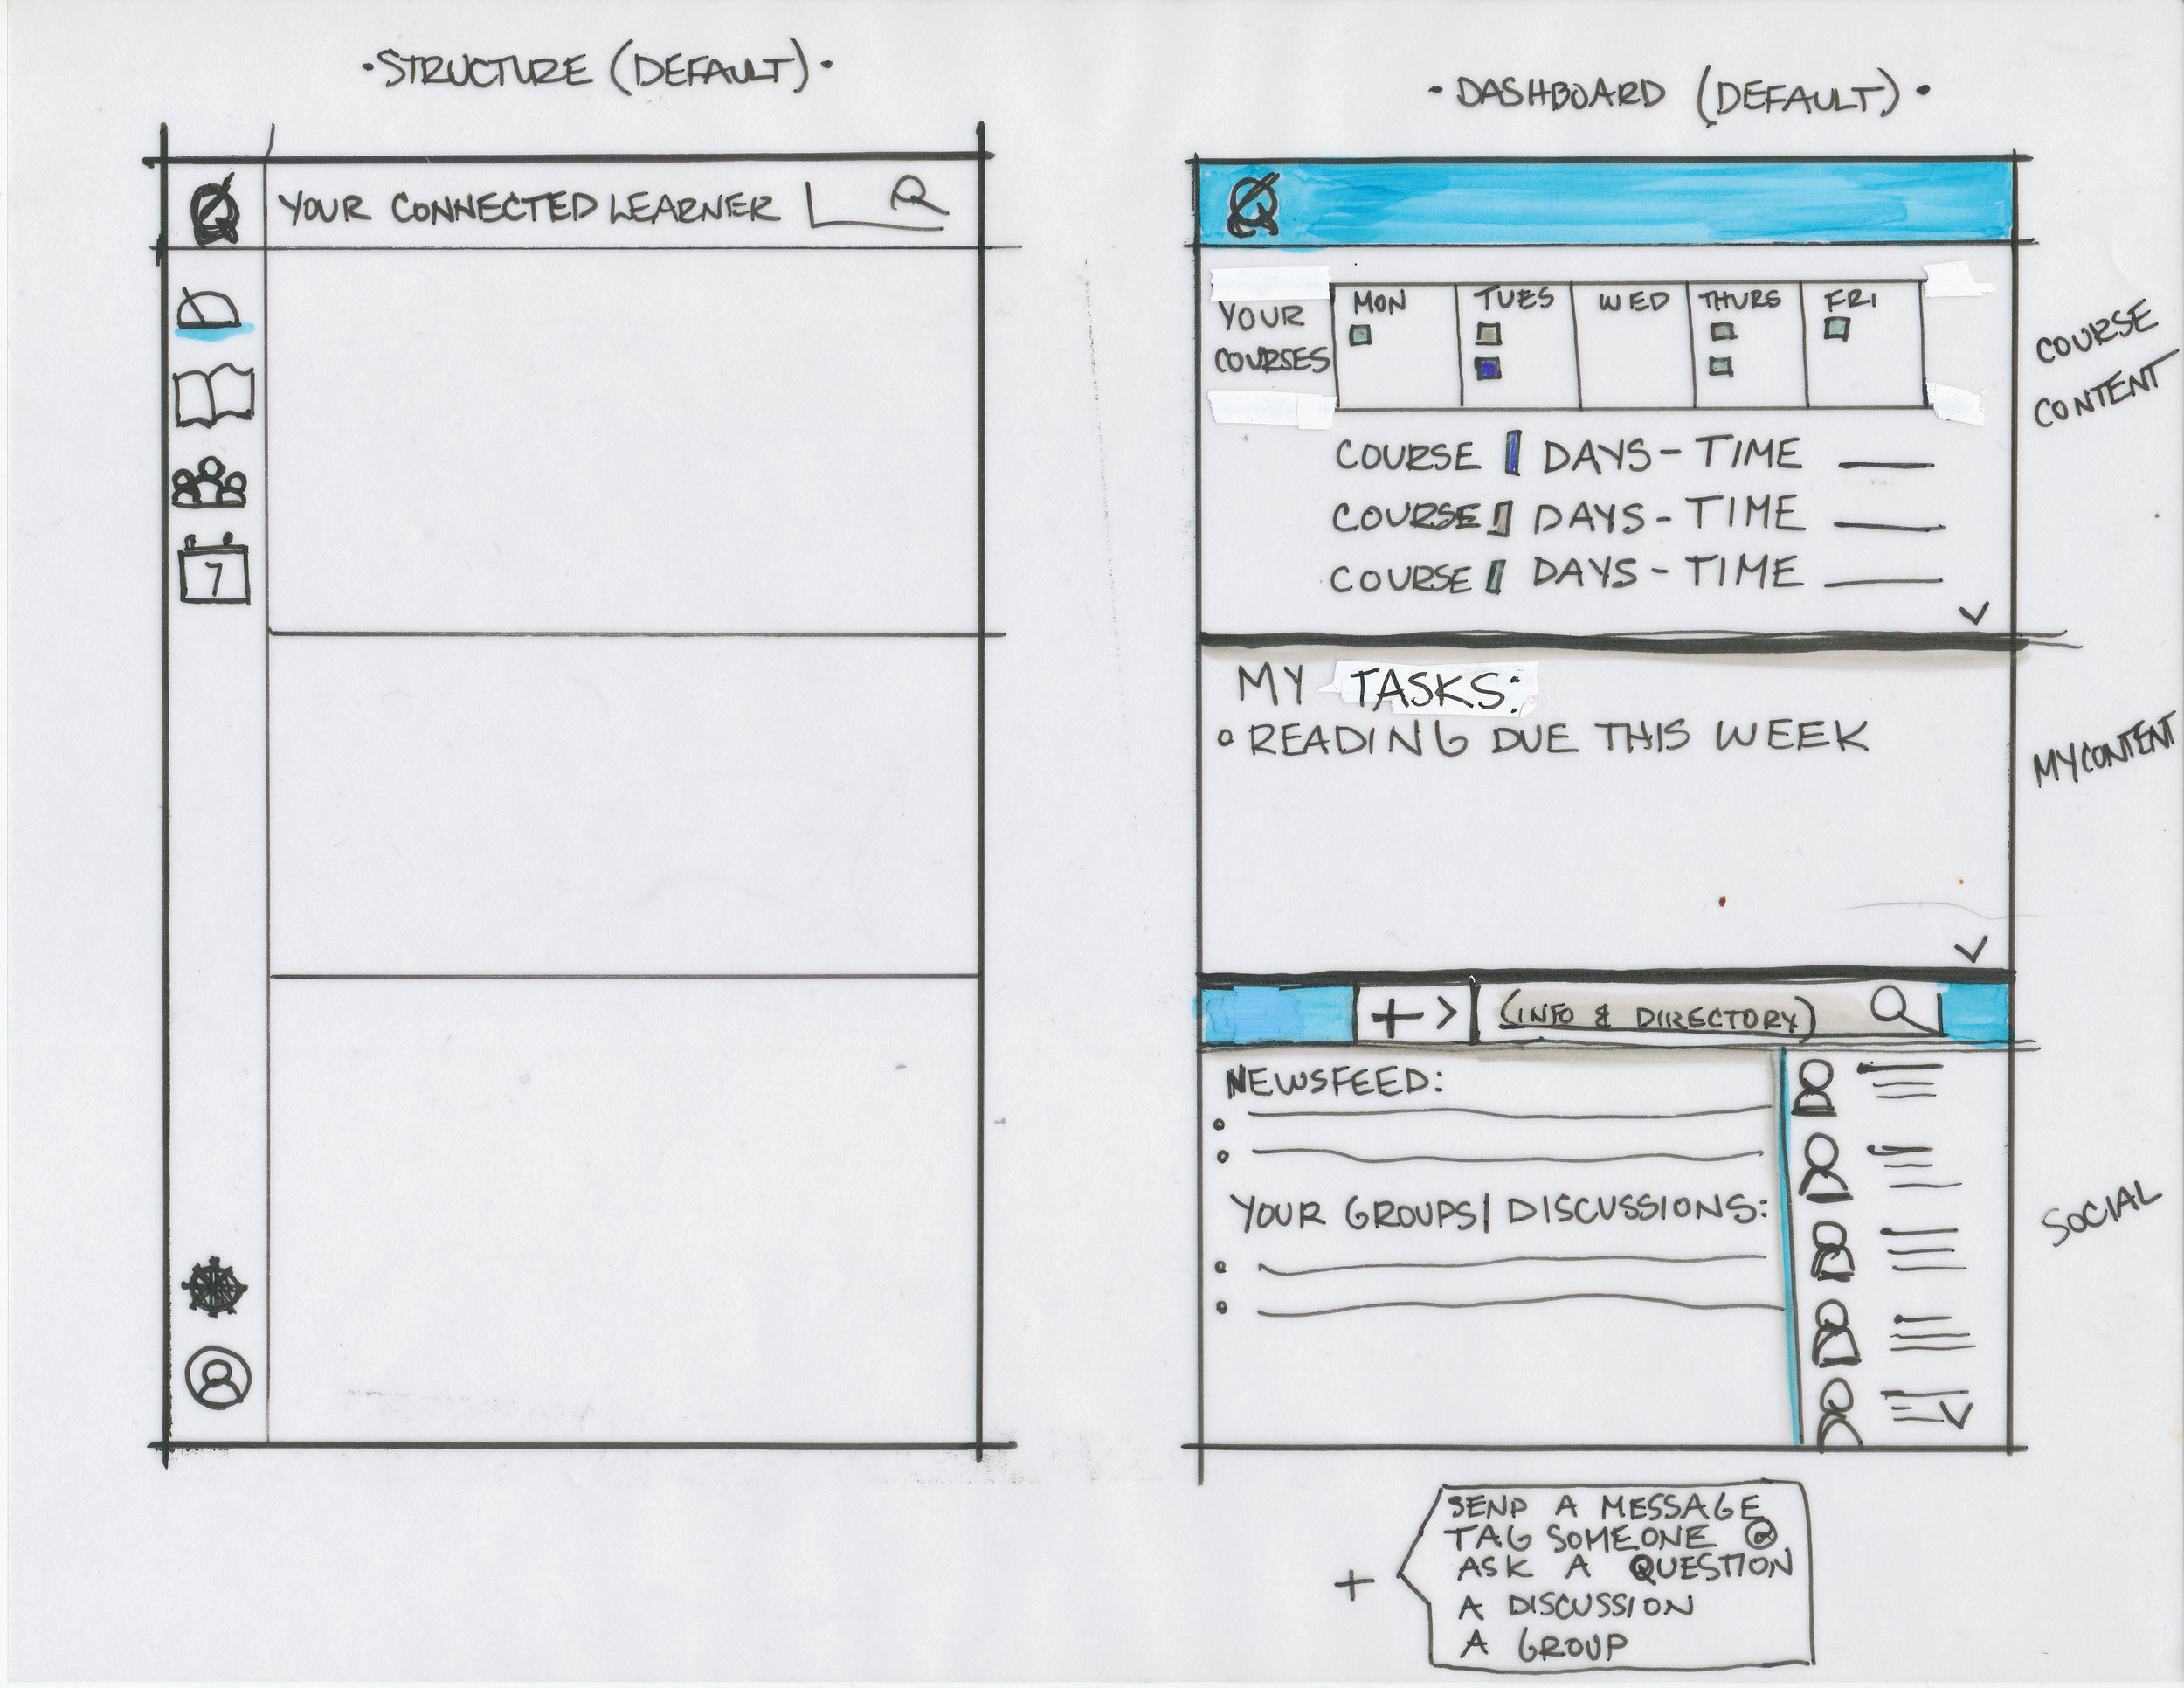 ·STRUCTURE (DEFAULT)·
YOUR CONNECTED LEARNER
7
·DASHBOARD (DEFAULT)·
YOUR COURSES
MON TUES WED THURS FRI
COURSE DAYS-TIME
COURSE DAYS-TIME
COURSE DAYS-TIME
COURSE
CONTENT
MY TASKS:
READING DUE THIS WEEK
MY CONTENT
+ > (INFO & DIRECTORY)
NEWSFEED:
YOUR GROUPS/DISCUSSIONS:
SOCIAL
+
SEND A MESSAGE
TAG SOMEONE @
ASK A QUESTION
A DISCUSSION
A GROUP